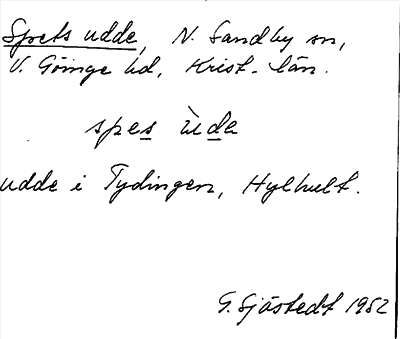 Spets udde, N. Sandby sn,
V. Göinge hd, Krist. län.
spes ùda
udde i Tydingen, Hylhult.
G. Sjöstedt 1952